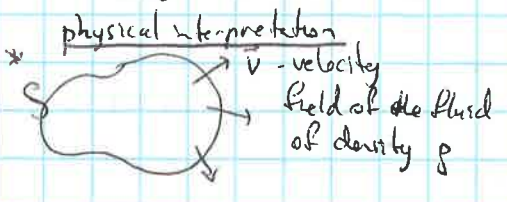 physical interpretation
* S v⃗ - velocity
field of the fluid
of density ρ